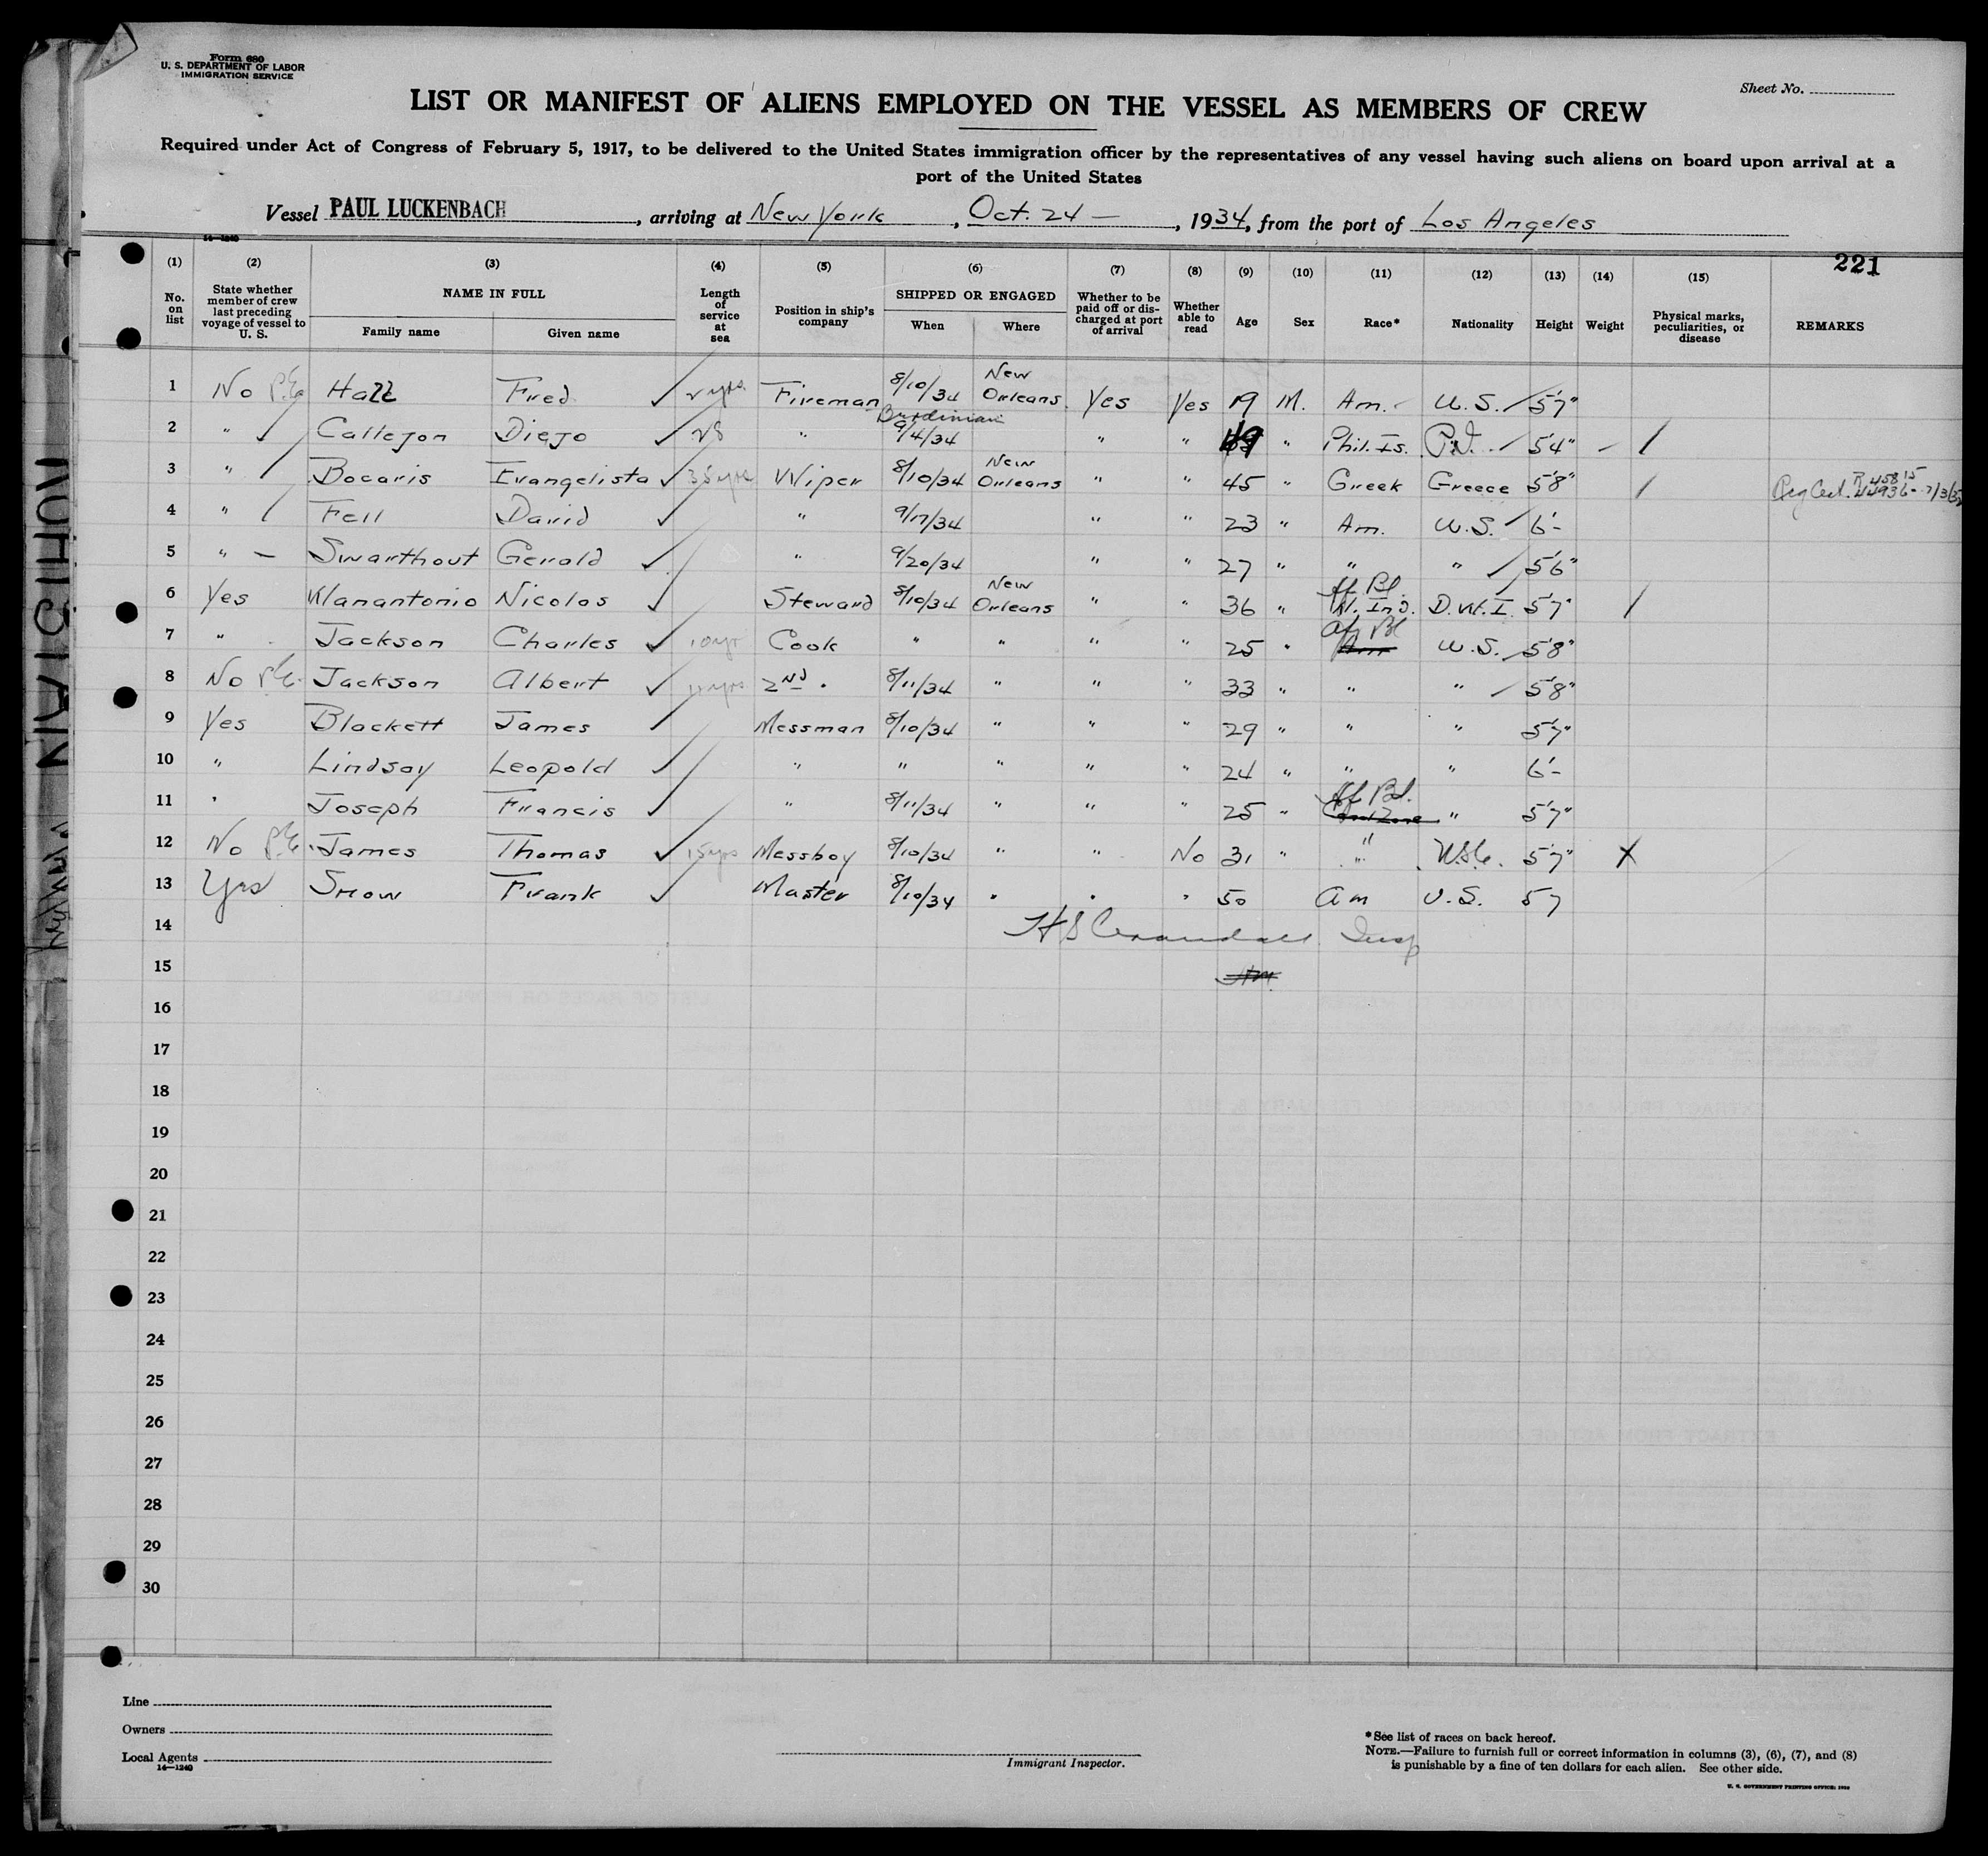 Form 680
U. S. DEPARTMENT OF LABOR
IMMIGRATION SERVICE
Sheet No.
LIST OR MANIFEST OF ALIENS EMPLOYED ON THE VESSEL AS MEMBERS OF CREW
Required under Act of Congress of February 5, 1917, to be delivered to the United States immigration officer by the representatives of any vessel having such aliens on board upon arrival at a
port of the United States
Vessel PAUL LUCKENBACH, arriving at New York, Oct. 24 —, 1934, from the port of Los Angeles
14—1240
221
(1) (2) (3) (4) (5) (6) (7) (8) (9) (10) (11) (12) (13) (14) (15)
No. on list State whether member of crew last preceding voyage of vessel to U. S. NAME IN FULL Family name Given name Length of service at sea Position in ship's company SHIPPED OR ENGAGED When Where Whether to be paid off or discharged at port of arrival Whether able to read Age Sex Race* Nationality Height Weight Physical marks, peculiarities, or disease REMARKS
1 No Hall Fred 2 yrs. Fireman 8/10/34 New Orleans Yes Yes 19 M. Am. U.S. 5'7"
2 " Callejon Diego 28 " 9/4/34 " " 49 " Phil. Is. P.I. 5'4"
3 " Bocaris Evangelista 35 yrs Wiper 8/10/34 New Orleans " " 45 " Greek Greece 5'8" Reg Cert. R 45815 44936 -
4 " Fell David " 9/17/34 " " 23 " Am. U.S. 6'-
5 " — Swarthout Gerald " 9/20/34 " " 27 " " " 5'6"
6 Yes Klanantonio Nicolas Steward 8/10/34 New Orleans " " 36 " Af. Bl. W. Ind. D.W.I. 5'7"
7 " Jackson Charles 10 yr Cook " " " " 25 " Af Bl U.S. 5'8"
8 No Jackson Albert 11 yrs 2nd " 8/11/34 " " " 33 " " " 5'8"
9 Yes Blackett James Messman 8/10/34 " " " 29 " " " 5'7"
10 " Lindsay Leopold " " " " " 24 " " " 6'-
11 " Joseph Francis " 8/11/34 " " " 25 " Af Bl. " 5'7"
12 No James Thomas 15 yrs Messboy 8/10/34 " " No 31 " " 5'7" X
13 Yes Snow Frank Master 8/10/34 " " " 50 Am U.S. 57
14 H S Crandall Insp
15
16
17
18
19
20
21
22
23
24
25
26
27
28
29
30
Line
Owners
Local Agents
14—1240
Immigrant Inspector.
*See list of races on back hereof.
NOTE.—Failure to furnish full or correct information in columns (3), (6), (7), and (8)
is punishable by a fine of ten dollars for each alien. See other side.